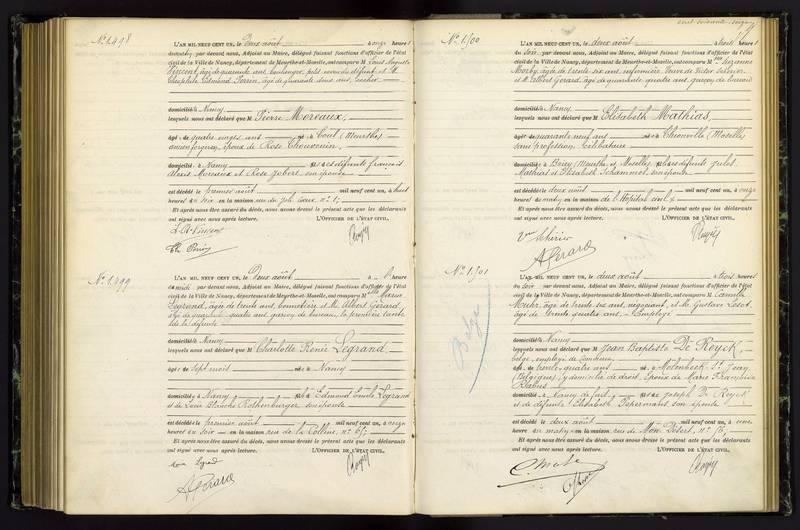 N° 1.498
L'AN MIL NEUF CENT UN, le Deux août à onze heures
par devant nous, Adjoint au Maire, délégué faisant fonctions d'officier de l'état
civil de la Ville de Nancy, département de Meurthe-et-Moselle, ont comparu M Louis Auguste
Vincent, âgé de quarante ans, boulanger, petit neveu du défunt et M.
Théophile Edmond Perrin, âgé de quarante deux ans, cocher
domiciliés à Nancy
lesquels nous ont déclaré que M Pierre Moreaux,
âgé de quatre vingts ans né à Toul (Meurthe)
ancien forgeron, époux de Rose
domicilié à Nancy fils des défunts François
Alexis Moreaux et Rose Gobert son épouse
est décédé le premier août mil neuf cent un, à huit
heures du soir en la maison rue du n° 1;
Et après nous être assuré du décès, nous avons dressé le présent acte que les déclarants
ont signé avec nous après lecture. L'OFFICIER DE L'ÉTAT CIVIL,
N° 1.499
L'AN MIL NEUF CENT UN, le Deux août à heure
de midi par devant nous, Adjoint au Maire, délégué faisant fonctions d'officier de l'état
civil de la Ville de Nancy, département de Meurthe-et-Moselle, ont comparu Mlle Maria
Legrand, âgée de trente ans, et M. Albert Gérard,
âgé de quarante quatre ans, garçon de bureau, la première tante
de la défunte
domiciliés à Nancy
lesquels nous ont déclaré que M Charlotte Renée Legrand,
âgée de sept mois née à Nancy
domiciliée à Nancy fille de Edmond Emile Legrand
et de Rothenburger son épouse
est décédée le premier août mil neuf cent un, à onze
heures du soir en la maison rue de la Colline, n° 65;
Et après nous être assuré du décès, nous avons dressé le présent acte que les déclarants
ont signé avec nous après lecture. L'OFFICIER DE L'ÉTAT CIVIL,
A Gérard
N° 1.500
L'AN MIL NEUF CENT UN, le deux août à trois heures
du soir par devant nous, Adjoint au Maire, délégué faisant fonctions d'officier de l'état
civil de la Ville de Nancy, département de Meurthe-et-Moselle, ont comparu Mme Suzanne
âgée de trente six ans, infirmière, veuve de Victor
et M. Albert Gérard, âgé de quarante quatre ans, garçon de bureau
domiciliés à Nancy
lesquels nous ont déclaré que M Elisabeth Mathias,
âgée de quarante neuf ans née à Thionville (Moselle)
sans profession Célibataire
domiciliée à Briey (Meurthe et Moselle) fille des défunts Jules
Mathias et Elisabeth son épouse
est décédée le deux août mil neuf cent un, à onze
heures du matin en la maison de l'Hôpital civil;
Et après nous être assuré du décès, nous avons dressé le présent acte que les déclarants
ont signé avec nous après lecture. L'OFFICIER DE L'ÉTAT CIVIL,
A Gérard
N° 1.501
Belge
L'AN MIL NEUF CENT UN, le deux août à trois heures
du soir par devant nous, Adjoint au Maire, délégué faisant fonctions d'officier de l'état
civil de la Ville de Nancy, département de Meurthe-et-Moselle, ont comparu M Camille
âgé de trente six ans, et M. Gustave
âgé de trente quatre ans, employé
domiciliés à Nancy
lesquels nous ont déclaré que M Jean Baptiste De Royck,
belge, employé de
âgé de trente quatre ans né à Molenbeek St Jean
(Belgique), y domicilié de droit, époux de Marie Françoise
domicilié à Nancy de fait fils de Joseph De Royck
et de défunte Elisabeth son épouse
est décédé le deux août mil neuf cent un, à une
heure du matin en la maison rue de Mon Désert, n°
Et après nous être assuré du décès, nous avons dressé le présent acte que les déclarants
ont signé avec nous après lecture. L'OFFICIER DE L'ÉTAT CIVIL,